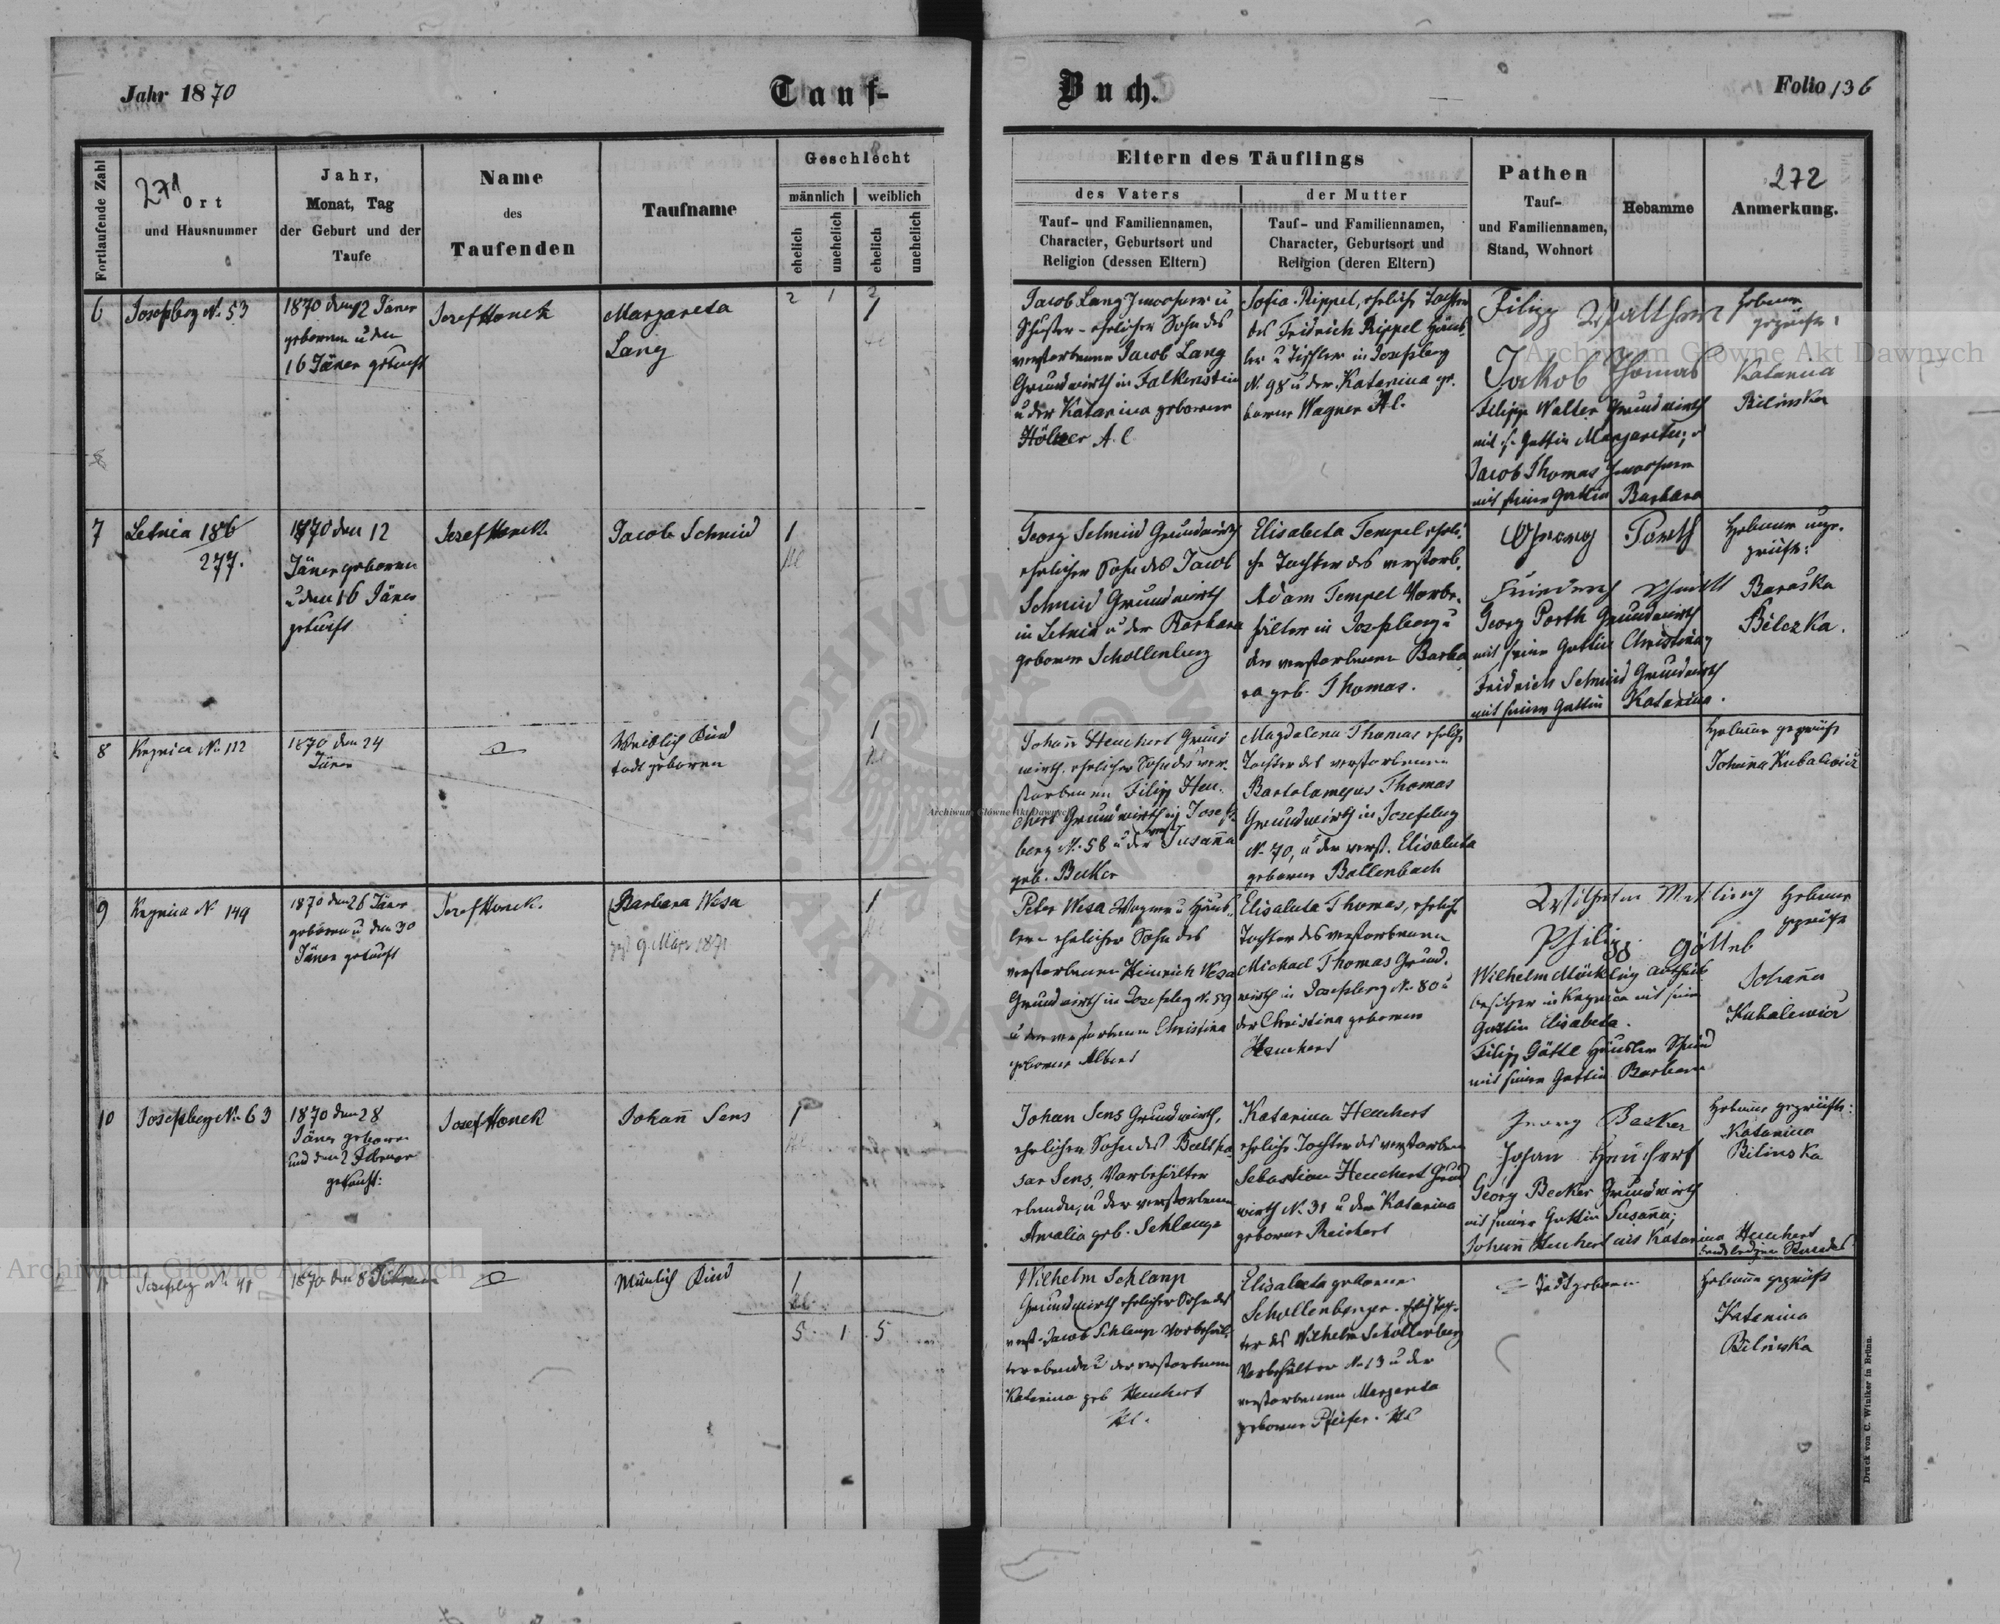 Jahr 1870
Tauf-
Buch.
Folio 136
Fortlaufende Zahl
271
Ort
und Hausnummer
Jahr,
Monat, Tag
der Geburt und der
Taufe
Name
des
Taufenden
Taufname
Geschlecht
männlich
weiblich
ehelich
unehelich
ehelich
unehelich
Eltern des Täuflings
des Vaters
Tauf- und Familiennamen,
Character, Geburtsort und
Religion (dessen Eltern)
der Mutter
Tauf- und Familiennamen,
Character, Geburtsort und
Religion (deren Eltern)
Pathen
Tauf-
und Familiennamen,
Stand, Wohnort
Hebamme
272
Anmerkung.
2 1 2
6
Josefsberg N. 53
1870 den 12 Jäner
geboren u den
16 Jäner getauft
Josef Honek
Margareta
Lang
1
Jacob Lang Inwohner u
Schuster - ehelicher Sohn des
verstorbenen Jacob Lang
Grundwirth in Falkenstein
u der Katarina geborene
A. C
Sofia Rippel, eheliche Tochter
des Fridrich Rippel Häus-
ler u Tischler in Josefsberg
N. 98 u der Katarina ge-
borene Wagner A C.
Filipp Walther
Jakob Thomas
Filipp Walter Grundwirth
mit s. Gattin Margareta; u
Jacob Thomas Inwohner
mit seiner Gattin Barbara
Hebamme
geprüfte:
Katarina
Bilinska
7
Letnia 186/
277.
1870 den 12
Jäner geboren
u den 16 Jäner
getauft
Josef Honek
Jacob Schmid
1
Georg Schmid Grundwirth
ehelicher Sohn des Jacob
Schmid Grundwirth
in Letnia u der Barbara
geborene Schollenberg
Elisabeta Tempel eheli-
che Tochter des verstorb.
Adam Tempel Vorbe-
hälter in Josefsberg u
der verstorbenen Barba
ra geb. Thomas.
Georg Porth
Friedrich Schmidt
Georg Porth Grundwirth
mit seiner Gattin Christina;
Fridrich Schmid Grundwirth
mit seiner Gattin Katarina.
Hebamme unge-
prüfte:
Baraska
Bilczka.
8
Krynica N. 112
1870 den 24
Jäner
Weiblich Kind
todt geboren
1
Johann Heuchert Grund
wirth, ehelicher Sohn des ver-
storbenen Filipp Heu-
chert Grundwirth in Josefs-
berg N. 58 u der verst. Susanna
geb. Becker
Magdalena Thomas eheliche
Tochter des verstorbenen
Bartolomeus Thomas
Grundwirth in Josefsberg
N. 70, u der verst. Elisabeta
geborene Bollenbach
Hebamme geprüfte
Johanna Kubalewicz
9
Krynica N. 149
1870 den 26 Jäner
geboren u den 30
Jäner getauft
Josef Honek.
Barbara Wesa
gest. 9. März 1871
1
Peter Wesa Wagner u Häus-
ler ehelicher Sohn des
verstorbenen Heinrich Wesa
Grundwirth in Josefsberg N. 59
u der verstorbenen Christina
geborene Albert
Elisabeta Thomas, eheliche
Tochter des verstorbenen
Michael Thomas Grund-
wirth in Josefsberg N. 80 u
der Christina geborene
Heuchert
Wilhelm
Philipp
Wilhelm Möckling
besitzer in Krynica mit seiner
Gattin Elisabeta.
Filipp Göttel Häusler
mit seiner Gattin Barbara
Hebamme
geprüfte
Johanna
Kubalewicz
10
Josefsberg N. 63
1870 den 28
Jäner geboren
und den 2 Februar
getauft:
Josef Honek
Johann Sens
1
Johan Sens Grundwirth,
ehelicher Sohn des Baltha-
sar Sens, Vorbehälter
ebenda, u der verstorbenen
Amalia geb. Schlamp
Katarina Heuchert
eheliche Tochter des verstorbenen
Sebastian Heuchert Grund
wirth N. 31 u der Katarina
geborene Reichert
Georg Becker
Johan Heuchert
Georg Becker Grundwirth
mit seiner Gattin Susanna;
Johann Heuchert mit Katarina Heuchert
Hebamme geprüfte:
Katarina
Bilinska
11
Josefsberg N. 41
1870 den 8 Februar
Mänlich Kind
1
5 1 5
Wilhelm Schlamp
Grundwirth ehelicher Sohn des
verst. Jacob Schlamp Vorbehäl-
ter ebenda u der verstorbenen
Katarina geb Heuchert
Elisabeta geborene
Schollenberger - ehelich Toch-
ter des Wilhelm Schollenberg
Vorbehälter N. 13 u der
verstorbenen Margareta
geborene Pfeifer.
Todtgeboren
Hebamme geprüfte
Katarina
Bilinska
Druck von C. Winiker in Brünn.
Archiwum Główne Akt Dawnych
Archiwum Główne Akt Dawnych
Archiwum Główne Akt Dawnych